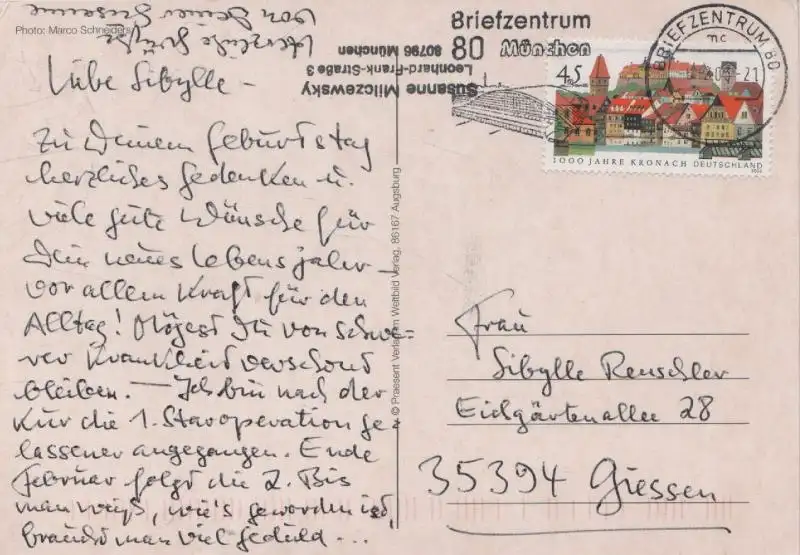 Photo: Marco Schneiders
Liebe Sibylle -
zu Deinem Geburtstag
herzliches Gedenken u.
viele gute Wünsche für
Dein neues Lebensjahr –
vor allem Kraft für den
Alltag! Mögest Du von schwe-
rer Krankheit verschont
bleiben. — Ich bin nach der
Kur die 1. Staroperation ge-
lassener angegangen. Ende
Februar folgt die 2. Bis
man weiß, wie's geworden ist,
braucht man viel Geduld ...
Herzliche Grüße
von Deiner Susanne
© Praesent Verlag im Weltbild Verlag, 86167 Augsburg
Susanne Milczewsky
Leonhard-Frank-Straße 3
80796 München
Briefzentrum
80 München
BRIEFZENTRUM 80
mc
45
1000 JAHRE KRONACH DEUTSCHLAND
Frau
Sibylle Renschler
Eichgärtenallee 28
35394 Giessen